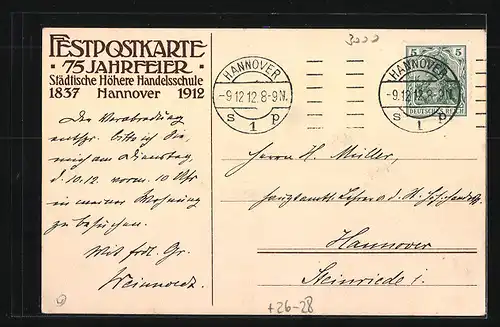 FESTPOSTKARTE
· 75 JAHRFEIER ·
Städtische Höhere Handelsschule
1837 Hannover 1912
3000
HANNOVER
-9.12.12.8-9N.
s 1 p
5 5
DEUTSCHES REICH
HANNOVER
-9.12.12.8-9N.
s 1 p
Der Verabredung
entspr. bitte ich Sie,
mich am Dienstag,
d. 10.12. vorm. 10 Uhr
in meiner Wohnung
zu besuchen.
Mit frdl. Gr.
Herrn H. Müller,
hauptamtl. Lehrer a. d. H.
Hannover
Steinriede 1.
+26-28